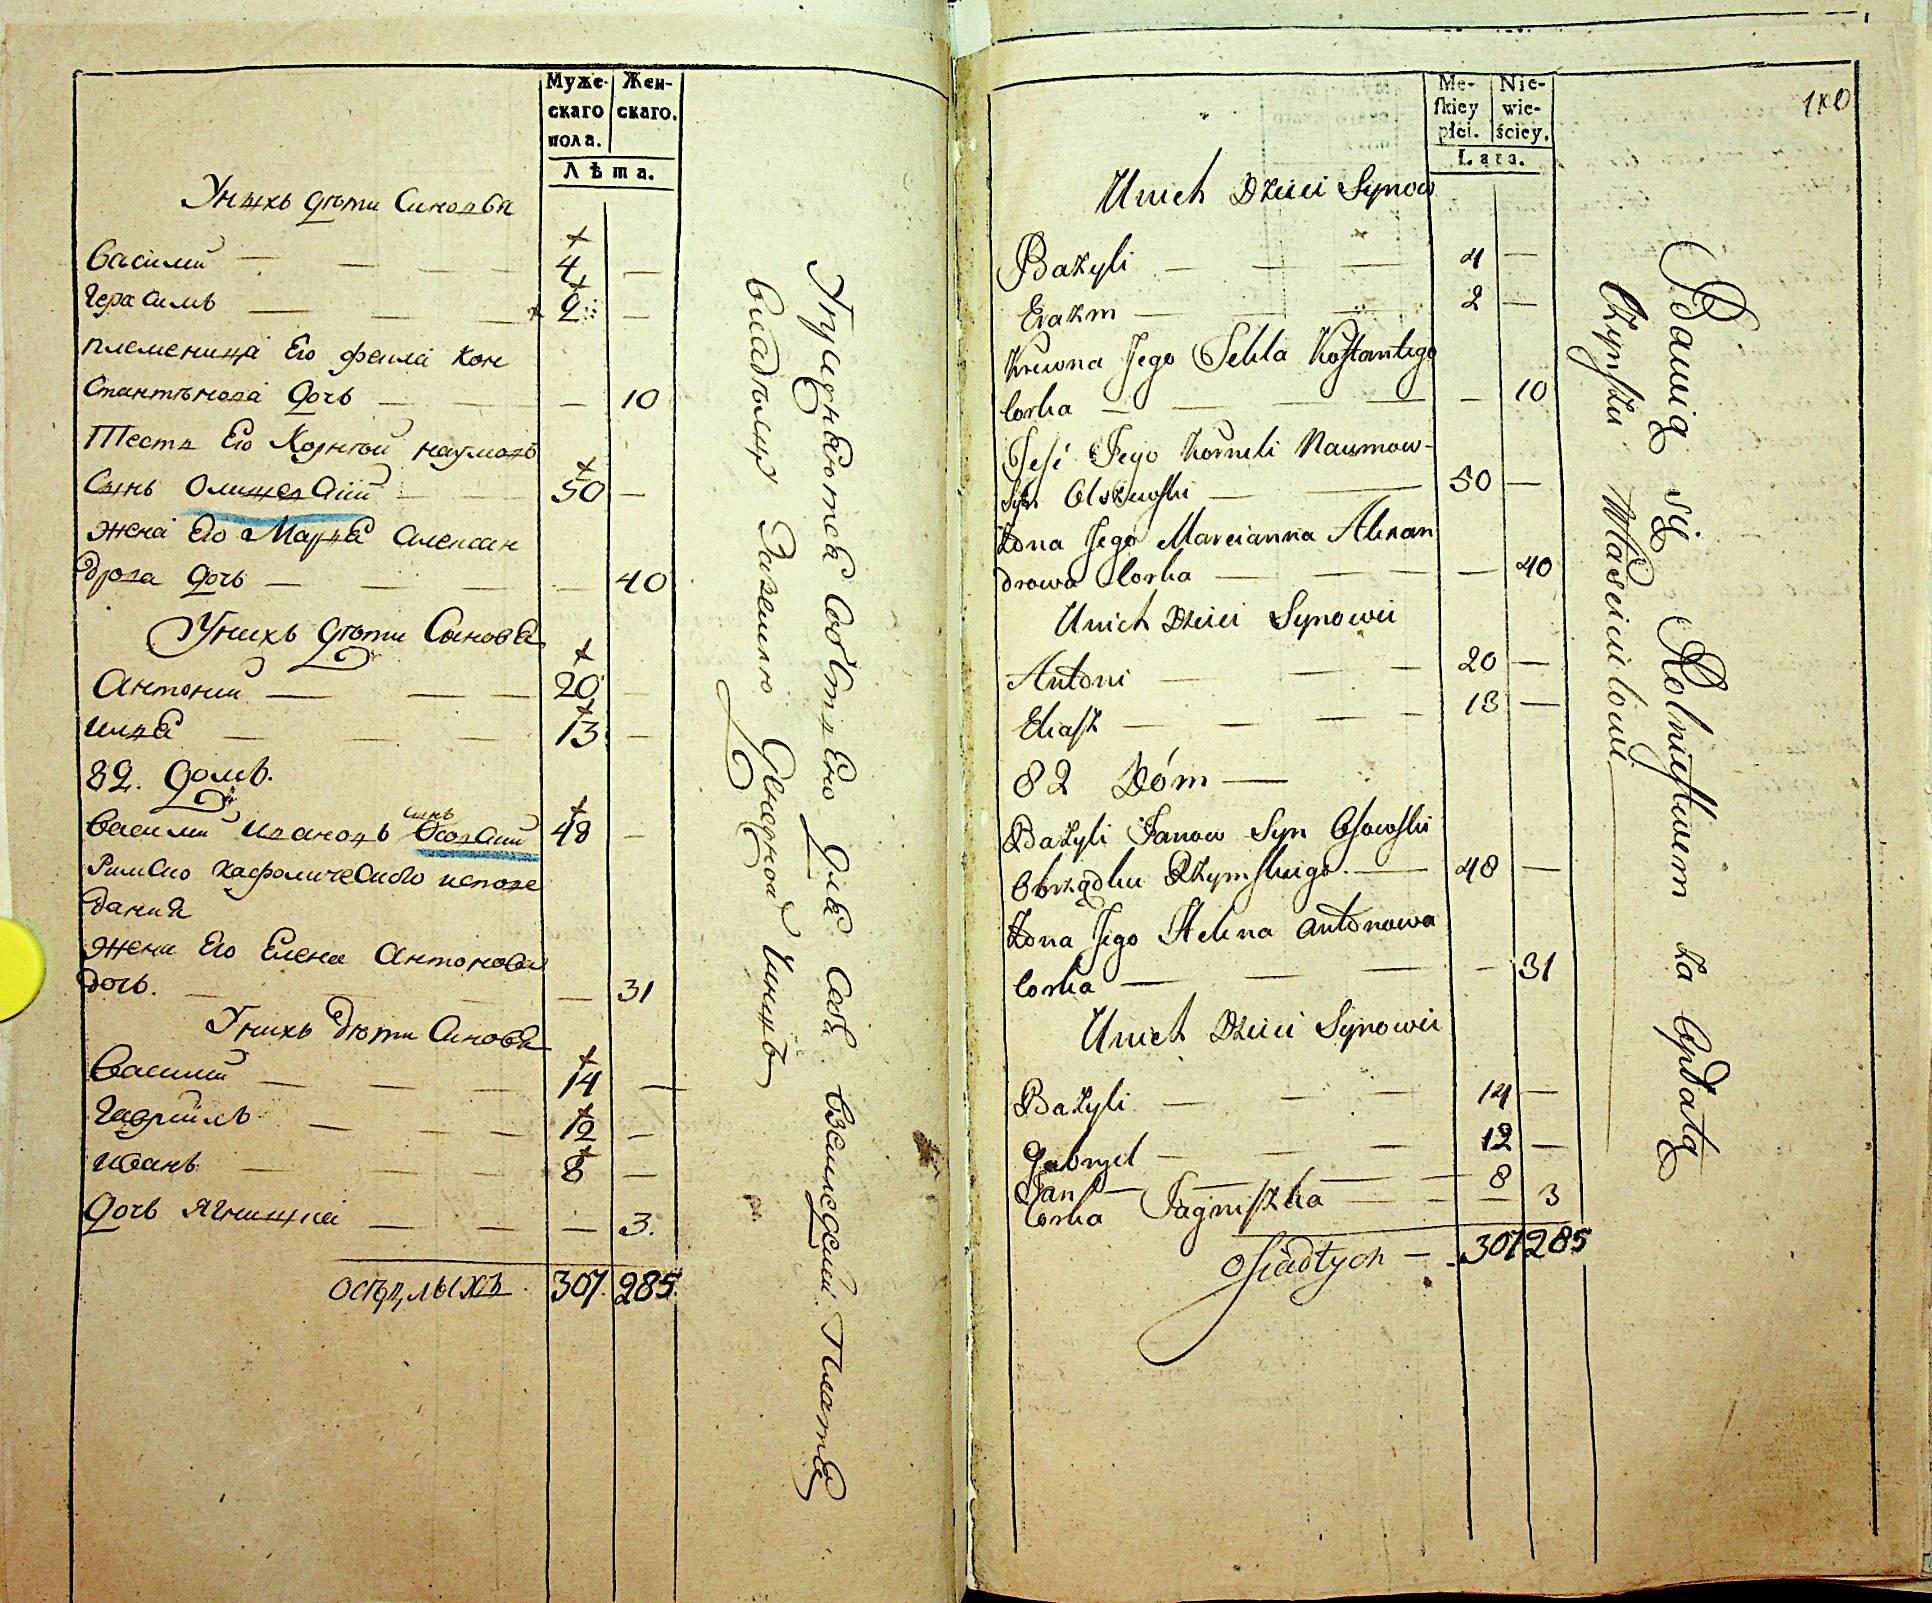 Муже-
скаго
пола.
Жен-
скаго.
Лѣта.
Унихъ дѣти Синовья
Василий — 4 —
Герасимъ — 2 —
племеница Его фекла Кон
стантѣнова дочъ — 10
Тесть Его Корнѣй наумовъ
Сынъ Олшевский 50 —
жена Его Марья алексан
дрова дочъ — 40
Унихъ дѣти Сыновья
Антоний — 20 —
илья — 13 —
82. домъ.
сынъ
василий ивановъ Осовский 48 —
Римско кафолического испове
дания
жена Его Елена Антонова
дочь. — 31
Унихъ дѣти Синовья
Василий — 14 —
Гавриилъ — 12 —
иванъ — 8 —
дочъ Ягнишка — 3.
осѣдлыхъ 307. 285.
для себя земледелии. Платя
владѣльцу За землю Чиншъ
180
Me-
skiey
płci.
Nie-
wie-
ściey.
Lata.
Unich Dzieci Synow
Bazyli — 4 —
Erazm — 2 —
Krewna Jego Tekla Kostantego
Corka — 10
Teść Jego Korneli Naumow-
Syn Olszewski — 50 —
Zona Jego Marcianna Alexan
drowa Corka — 40
Unich Dzieci Synowie
Antoni — 20 —
Eliasz — 13 —
82 Dóm —
Bazyli Janow Syn Osowski
Obrządku Rzymskiego. — 48 —
Zona Jego Helena Antonowa
Corka — 31
Unich Dzieci Synowie
Bazyli — 14 —
Gabryel — 12 —
Jan — 8
Corka Jagniszka — 3
Osiadłych — 307 285
Bawią się Rolnictwem za Opłatą
Czynszu Właścicielowi